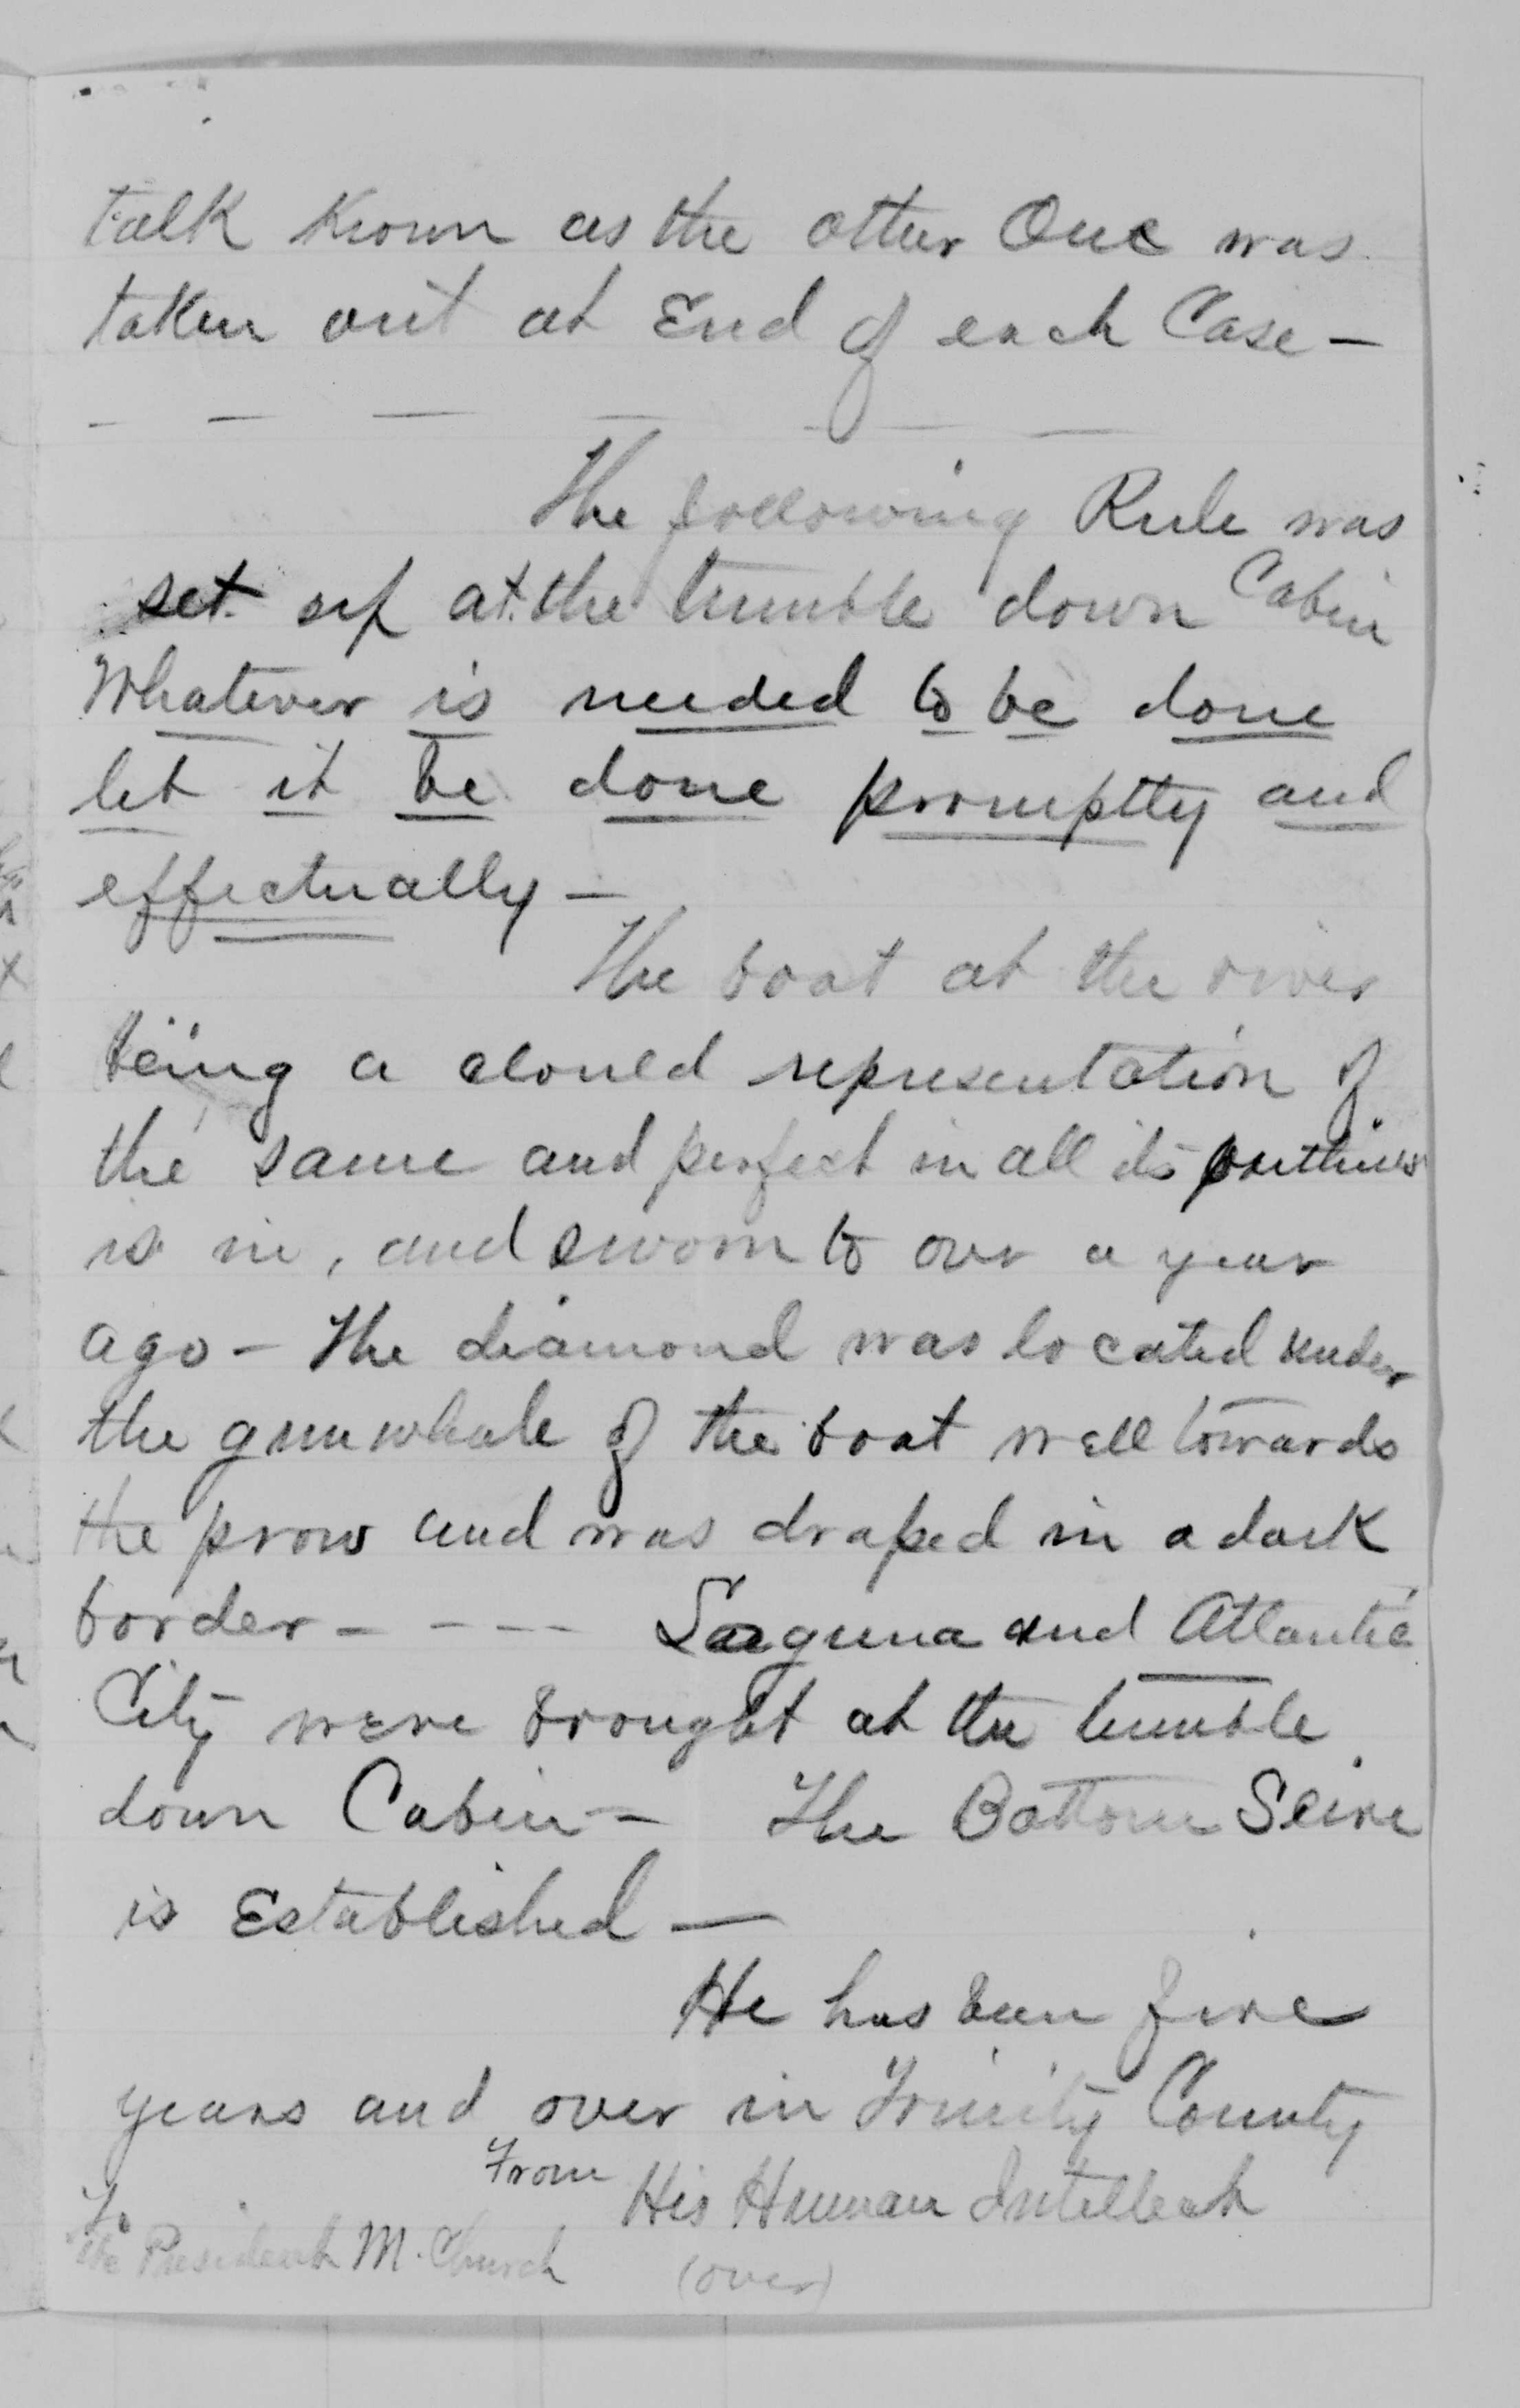 talk Known as the other One was
taken out at End of each Case —
— — — — — —
The following Rule was
set up at the tumble down Cabin
Whatever is needed to be done
let it be done promptly and
effectually —
The boat at the river
being a cloned representation of
the same and perfect in all its outlines
is in, and sworn to over a year
ago — The diamond was located under
the gunwhale of the boat well towards
the prow and was draped in a dark
border - - - - Laguna and Atlantic
City were brought at the tumble
down Cabin — The Bottom
is Established —
He has been five
years and over in Trinity County
From His Human Intellect
To
The President M. Church
(over)